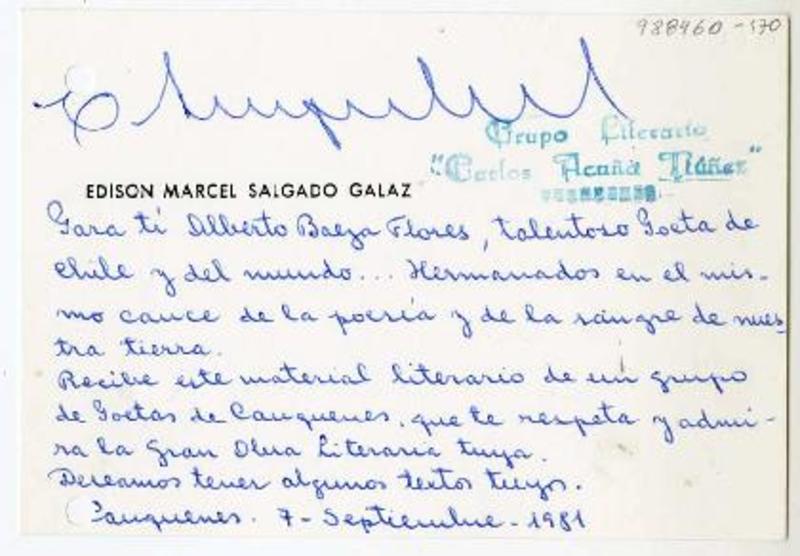 988460-170
Grupo Literario
"Carlos Acuña Núñez"
EDISON MARCEL SALGADO GALAZ
Para tí Alberto Baeza Flores, talentoso Poeta de
Chile y del mundo... Hermanados en el mis-
mo cauce de la poesía y de la sangre de nues-
tra tierra.
Recibe este material literario de un grupo
de Poetas de Cauquenes, que te respeta y admi-
ra la Gran Obra Literaria tuya.
Deseamos tener algunos textos tuyos.
Cauquenes. 7-Septiembre-1981